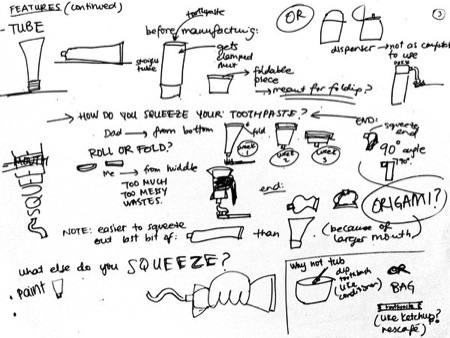 FEATURES (continued)
- TUBE
straight tube
before manufacturing:
toothpaste
gets clamped shut
foldable piece
→ meant for foldip?
OR
dispenser → not as comfortable to use
3
→ HOW DO YOU SQUEEZE YOUR TOOTHPASTE? ←
Dad → from bottom
fold
week 1
week 2
week 3
ROLL OR FOLD?
Me → from middle
TOO MUCH
TOO MESSY
WASTES.
SQUEEZE
MOUTH
END:
squeeze end
90° angle
90°
end:
ORIGAMI?
NOTE: easier to squeeze
out last bit of:
than
(because of
larger mouth)
What else do you SQUEEZE?
. paint
Why not tub
dip
toothbrush
(like
conditioner)
OR
BAG
(like ketchup?
nescafé)